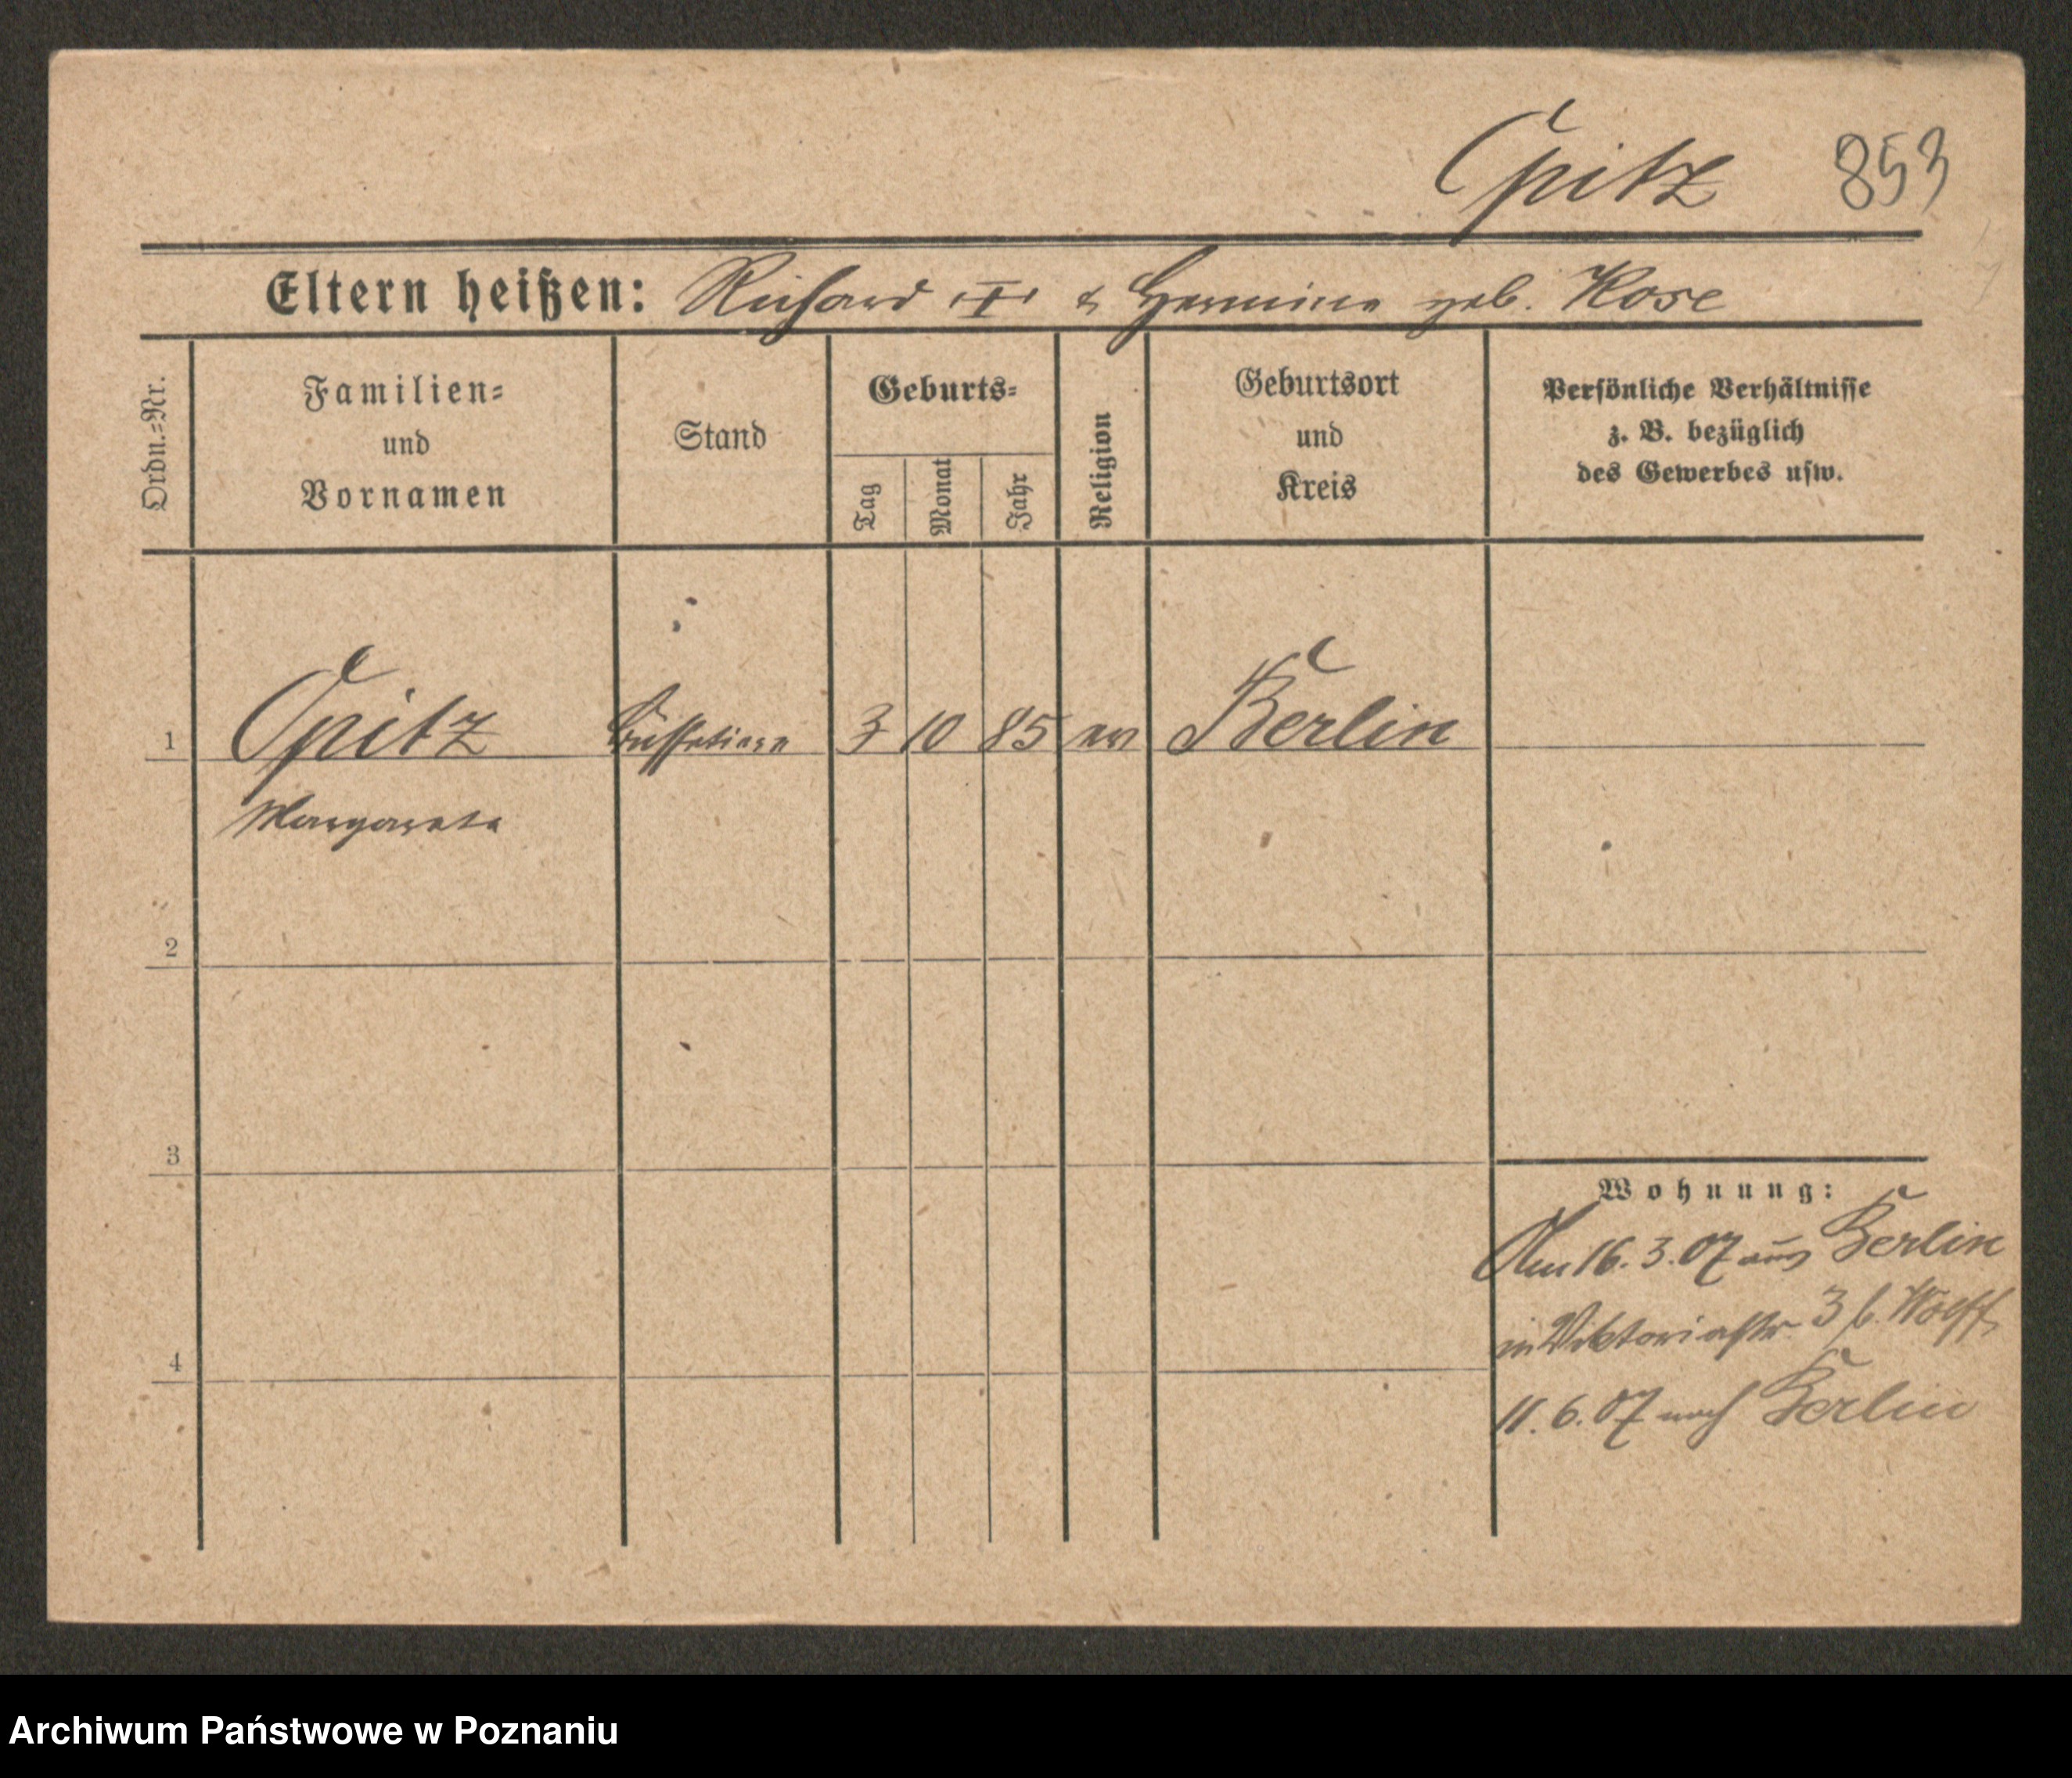 Opitz 853
Eltern heißen: Richard & Hermine geb. Rose
Ordn.=Nr.
Familien=
und
Vornamen
Stand
Geburts=
Tag
Monat
Jahr
Religion
Geburtsort
und
Kreis
Persönliche Verhältnisse
z. B. bezüglich
des Gewerbes usw.
1 Opitz Büffetiere 3 10 85 ev Berlin
Margarete
2
3
4
Wohnung:
Am 16. 3. 07 aus Berlin
in Viktoriastr. 3 b. Wolff
11. 6. 07 nach Berlin
Archiwum Państwowe w Poznaniu